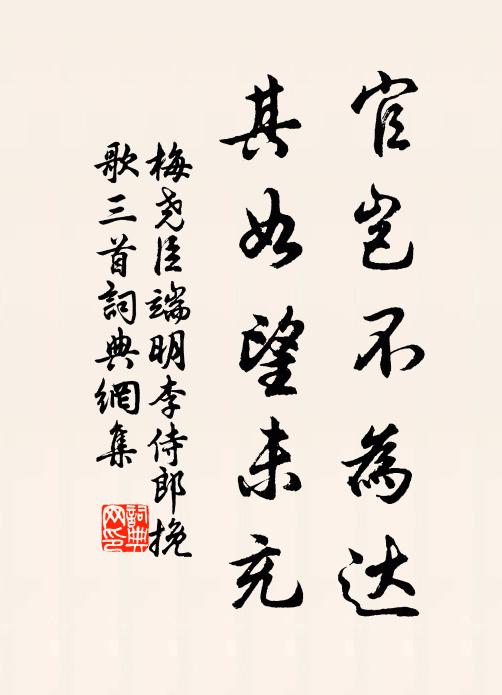 官岂不為达
其如望未充
梅尧臣端明李侍郎挽
歌三首詞典網集